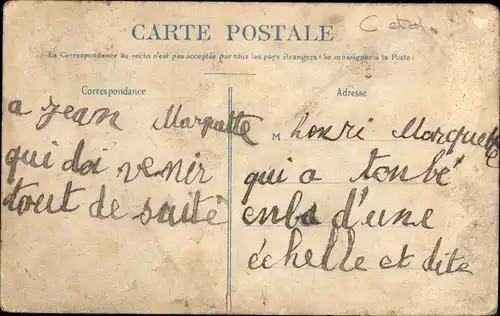 CARTE POSTALE
La Correspondance au recto n'est pas acceptée par tous les pays étrangers (Se renseigner à la Poste)
Correspondance
a jean Marquette
qui doi venir
tout de suite
Adresse
M henri Marquette
qui a tonbé
enba d'une
échelle et dite